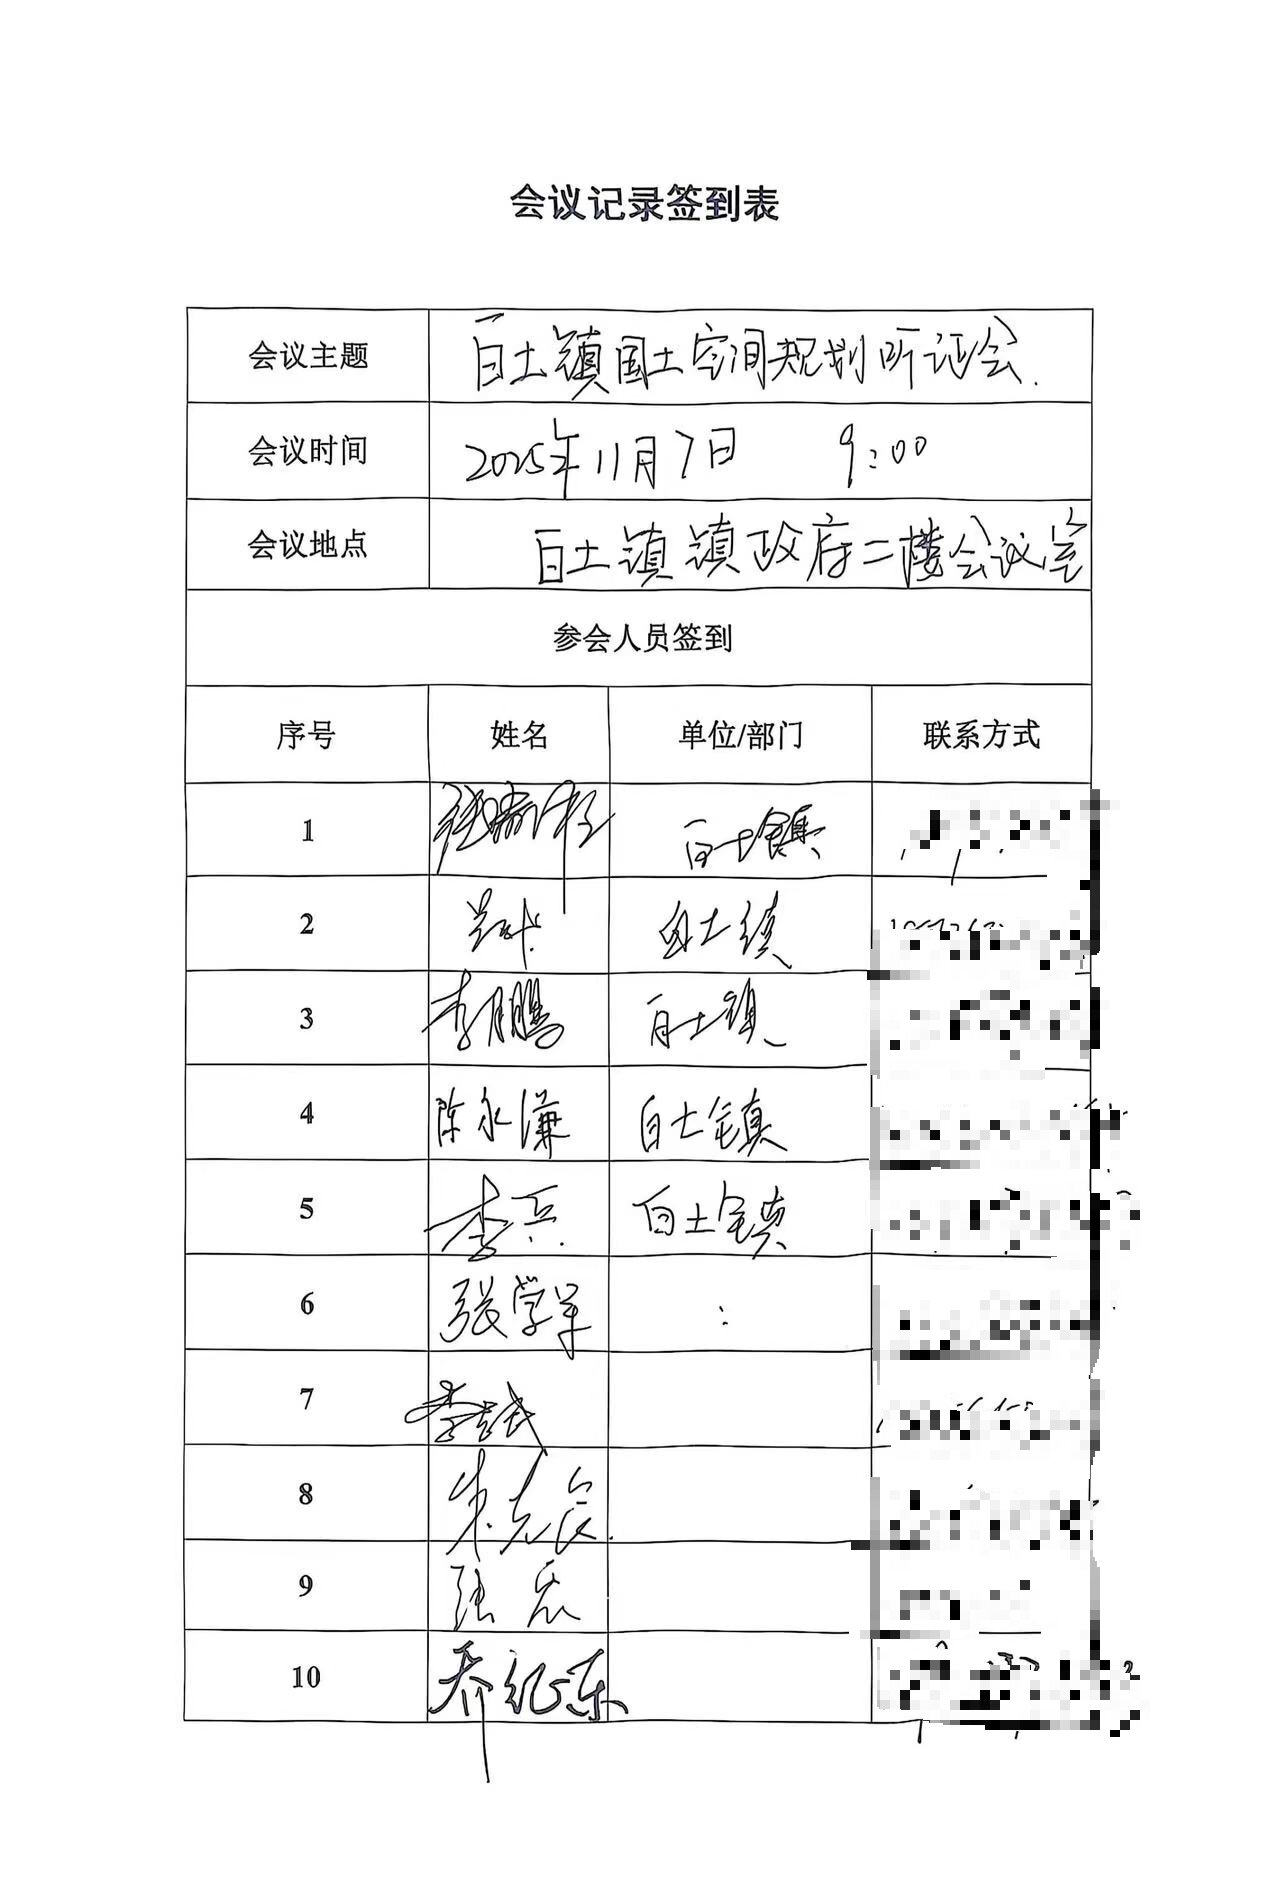 会议记录签到表
会议主题 百土镇国土空间规划听证会.
会议时间 2025年11月7日 9:00
会议地点 百土镇镇政府二楼会议室
参会人员签到
序号 姓名 单位/部门 联系方式
1 百土镇
2 百土镇
3 李鹏 百土镇
4 陈永谦 百土镇
5 李兵 百土镇
6 张学军
7 李
8 朱克良
9 张宏
10 乔纪东